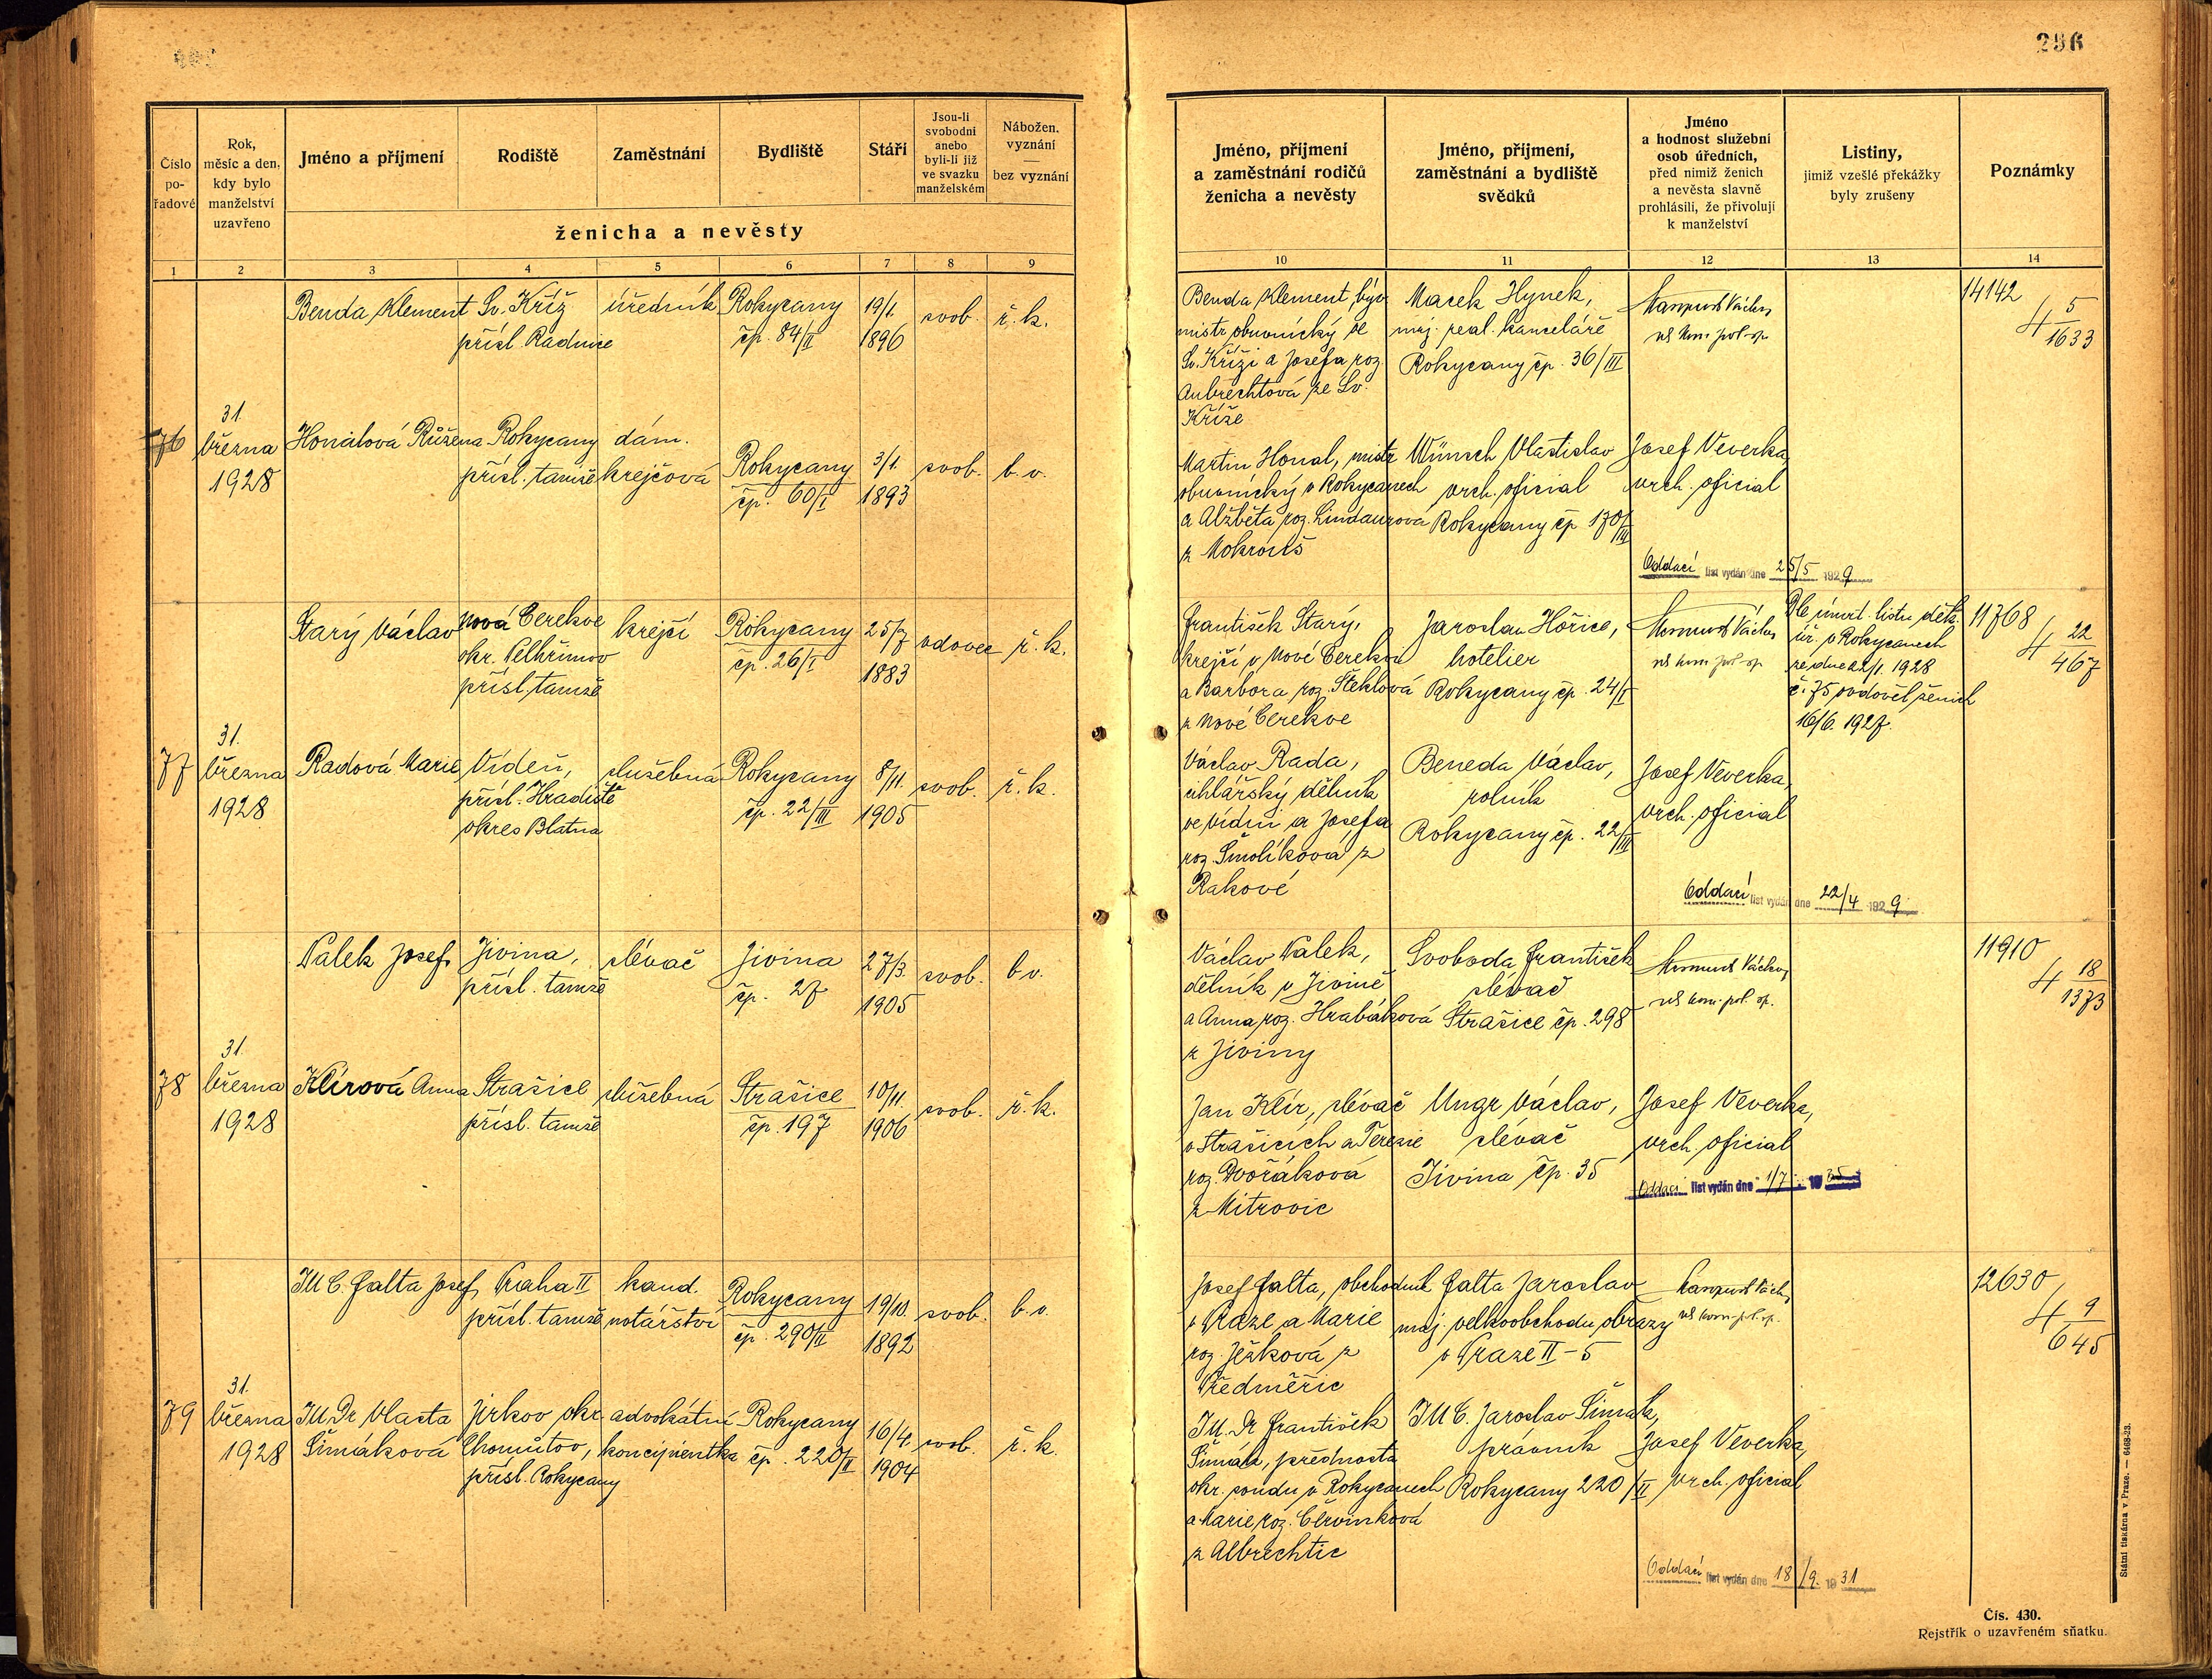 296
Číslo
po-
řadové
Rok,
měsíc a den,
kdy bylo
manželství
uzavřeno
Jméno a příjmení
Rodiště
Zaměstnání
Bydliště
Stáří
Jsou-li
svobodni
anebo
byli-li již
ve svazku
manželském
Nábožen.
vyznání
—
bez vyznání
ženicha a nevěsty
1 2 3 4 5 6 7 8 9
Jméno, příjmení
a zaměstnání rodičů
ženicha a nevěsty
Jméno, příjmení,
zaměstnání a bydliště
svědků
Jméno
a hodnost služební
osob úředních,
před nimiž ženich
a nevěsta slavně
prohlásili, že přivolují
k manželství
Listiny,
jimiž vzešlé překážky
byly zrušeny
Poznámky
10 11 12 13 14
Benda Klement
Sv. Kříž
přísl. Radnice
úředník
Rokycany
čp. 84/II
19/1.
1896
svob.
ř. k.
Benda Klement, býv.
mistr obuvnický ve
Sv. Kříži a Josefa roz.
Aubrechtová ze Sv.
Kříže
Macek Hynek,
maj. real. kanceláře
Rokycany čp. 36/III
Václav
14142
4 5/1633
76
31.
března
1928
Honalová Růžena
Rokycany
přísl. tamže
dám.
krejčová
Rokycany
čp. 60/I
3/1.
1893
svob.
b. v.
Martin Honal, mistr
obuvnický v Rokycanech
a Alžběta roz. Lindaurová
z Mokrouš
Wünsch Vlastislav
vrch. oficial
Rokycany čp. 170/III
Josef Veverka
vrch. oficial
Oddací list vydán dne 25/5 1929
Starý Václav
Nová Cerekve
okr. Pelhřimov
přísl. tamže
krejčí
Rokycany
čp. 26/I
25/7
1883
vdovec
ř. k.
František Starý,
krejčí v Nové Cerekvi
a Barbora roz. Steklová
z Nové Cerekve
Jaroslav Hořice,
hotelier
Rokycany čp. 24/I
Václav
Dle úmrt. listu děk.
úř. v Rokycanech
ze dne 22/1. 1928
č. 75 ovdověl ženich
16/6. 1927.
11768
4 22/467
77
31.
března
1928
Radová Marie
Vídeň,
přísl. Hradiště
okres Blatna
služebná
Rokycany
čp. 22/III
8/11.
1905
svob.
ř. k.
Václav Rada,
cihlářský dělník
ve Vídni a Josefa
roz. Šmolíková z
Rakové
Beneda Václav,
rolník
Rokycany čp. 22/III
Josef Veverka,
vrch. oficial
Oddací list vydán dne 22/4 1929
Valek Josef
Jivina,
přísl. tamže
slévač
Jivina
čp. 27
27/3.
1905
svob.
b v.
Václav Valek,
dělník v Jivině
a Anna roz. Hrabáková
z Jiviny
Svoboda František
slévač
Strašice čp. 298
Václav
11910
4 18/1373
78
31.
března
1928
Klírová Anna
Strašice
přísl. tamže
služebná
Strašice
čp. 197
10/11.
1906
svob.
ř. k.
Jan Klír, slévač
v Strašicích a Terezie
roz. Dvořáková
z Mitrovic
Ungr Václav,
slévač
Jivina čp. 35
Josef Veverka,
vrch. oficial
Oddací list vydán dne 1/7. 1935
JUC. Falta Josef
Praha II
přísl. tamže
kand.
notářství
Rokycany
čp. 290/II
19/10.
1892
svob.
b. v.
Josef Falta, obchodník
v Praze a Marie
roz. Ježková z
Předměřic
Falta Jaroslav
maj. velkoobchodu obrazy
v Praze II - 5
Václav
12630
4 9/645
79
31.
března
1928
JU. Dr Vlasta
Šimáková
Jirkov okr.
Chomutov,
přísl. Rokycany
advokátní
koncipientka
Rokycany
čp. 220/II
16/4.
1904
svob.
ř. k.
JU. Dr František
Šimák, přednosta
okr. soudu v Rokycanech
a Marie roz. Červinková
z Albrechtic
JUC. Jaroslav Šimák,
právník
Rokycany 220/II
Josef Veverka,
vrch. oficial
Oddací list vydán dne 18/9. 1931
Státní tiskárna v Praze. — 6468-23.
Čís. 430.
Rejstřík o uzavřeném sňatku.